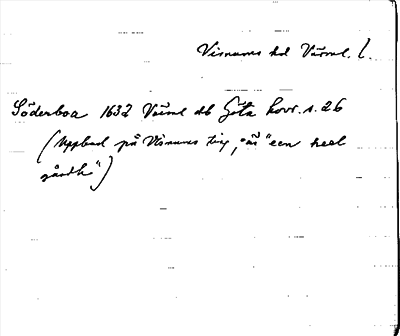 Visnums hd Värml. l.
Söderboa 1632 Värml db Göta hovr. s. 26
(Uppbud på Visnums ting, "är" een heel
gårdh")